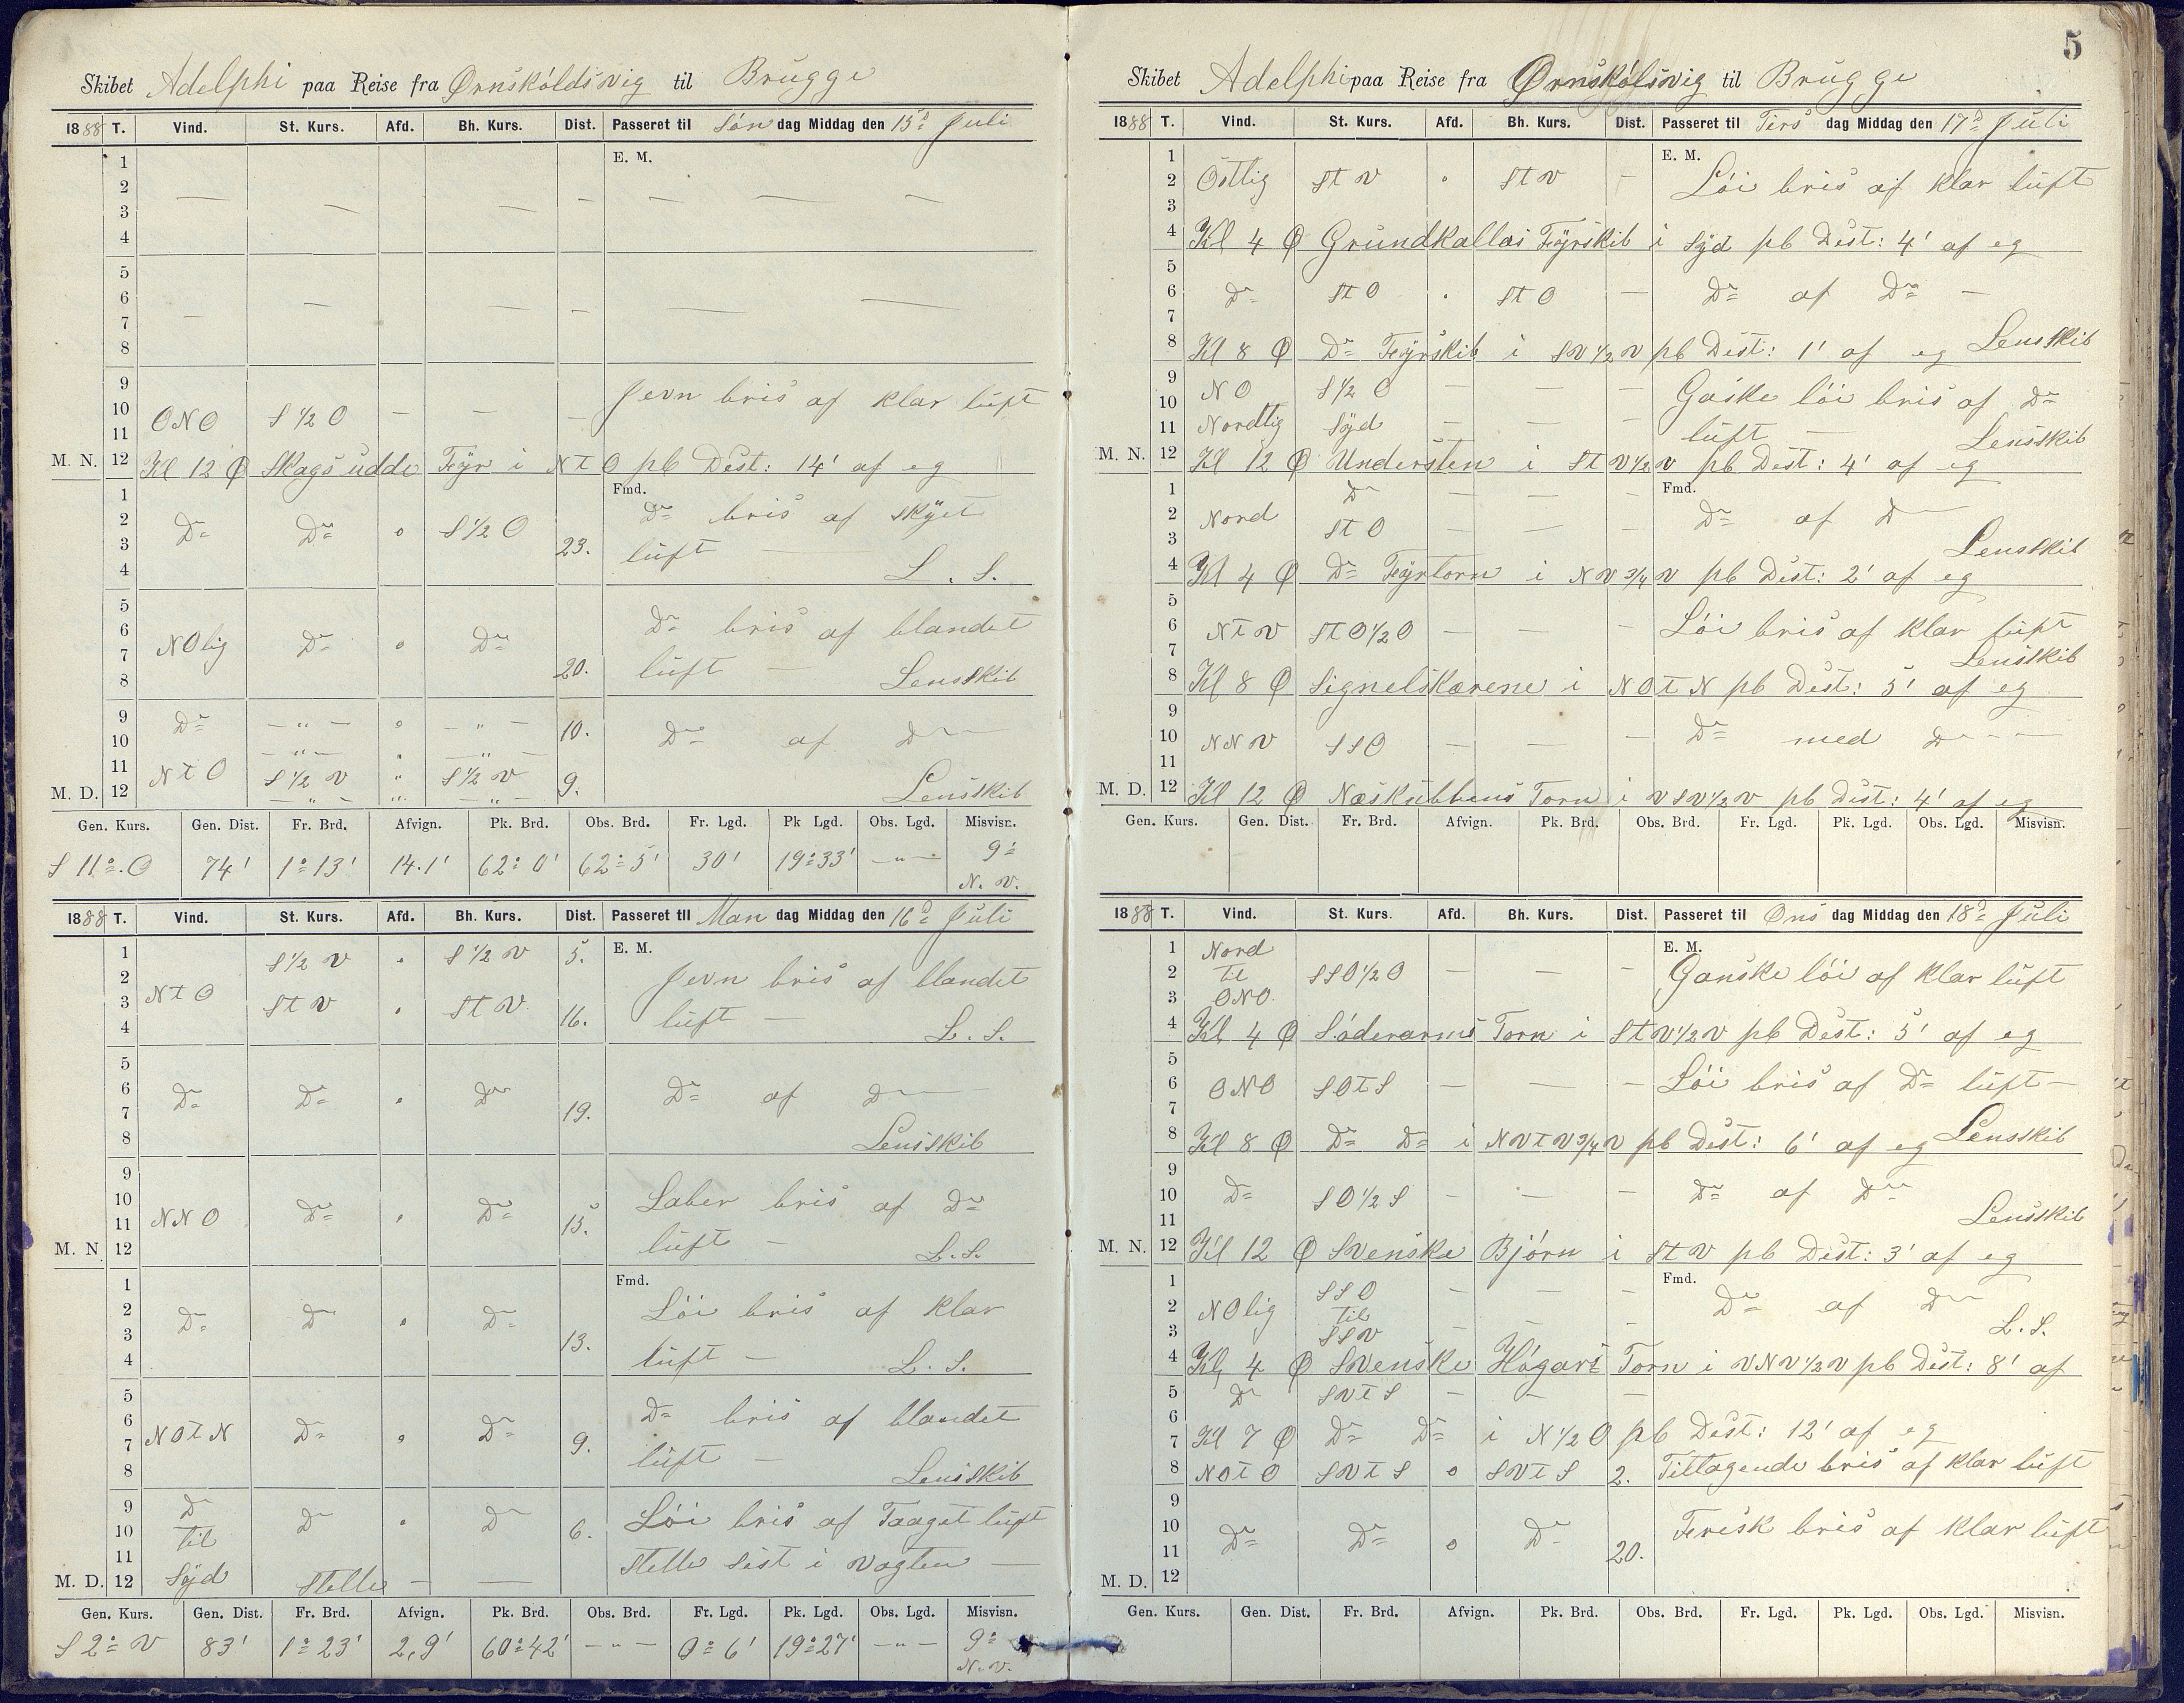 Skibet Adelphi paa Reise fra Ørnsköldsvig til Brugge
1888 T. Vind. St. Kurs. Afd. Bh. Kurs. Dist. Passeret til Søn dag Middag den 15d Juli
E. M.
1
2
3
4
5
6
7
8
9
10 ONO S 1/2 O — — — Jevn bris af klar luft
11
M. N. 12 Kl 12 Ø Skags udde Fyr i N t O pb Dest: 14' af eg
Fmd.
1
2 Do Do " S 1/2 O 23. Do bris af skyet
3 luft —
4 L. S.
5
6 NOlig Do " Do 20. Do bris af blandet
7 luft —
8 Lensskib
9 Do — " — " — " — 10. Do af Do
10 — " — " — " —
11 N t O S 1/2 V " S 1/2 V 9.
M. D. 12 — " — " — " — Lensskib
Gen. Kurs. Gen. Dist. Fr. Brd. Afvign. Pk. Brd. Obs. Brd. Fr. Lgd. Pk Lgd. Obs. Lgd. Misvisn.
S 11°. O 74' 1° 13' 14.1' 62° 0' 62° 5' 30' 19° 33' — " — 9° N. V.
1888 T. Vind. St. Kurs. Afd. Bh. Kurs. Dist. Passeret til Man dag Middag den 16d Juli
1 S 1/2 V " S 1/2 V 5. E. M.
2 Jevn bris af blandet
3 N t O S t V " S t V 16. luft —
4 L. S.
5
6 Do Do " Do 19. Do af Do
7
8 Lensskib
9
10 Laber bris af Do
11 NNO Do " Do 15. luft —
M. N. 12 L. S.
Fmd.
1
2 Do Do " Do 13. Løi bris af klar
3 luft —
4 L. S.
5
6 Do bris af blandet
7 NOtN Do " Do 9. luft —
8 Lensskib
9 Do
10 til Do " Do 6. Løi bris af Taaget luft
11 stelle sist i vagten —
M. D. 12 Syd Stelle — —
Gen. Kurs. Gen. Dist. Fr. Brd. Afvign. Pk. Brd. Obs. Brd. Fr. Lgd. Pk. Lgd. Obs. Lgd. Misvisn.
S 2° V 83' 1° 23' 2,9' 60° 42' — " — 0° 6' 19° 27' — " — 9° N. V.
5
Skibet Adelphi paa Reise fra Ørnskölsvig til Brugge
1888 T. Vind. St. Kurs. Afd. Bh. Kurs. Dist. Passeret til Tirs dag Middag den 17d Juli
1 E. M.
2 Östlig St V " St V — Løi bris af klar luft
3
4 Kl 4 Ø Grundkallas Fyrskib i Syd pb Dest: 4' af eg
5
6 Do St O " St O — Do af Do —
7
8 Kl 8 Ø Do Fyrskib i SV 1/2 V pb Dest: 1' af eg Lensskib
9 NO S 1/2 O — — — Gaske løi bris af Do
10
11 Nordlig Syd — — — luft — Lensskib
M. N. 12 Kl 12 Ø Understen i St V 1/2 V pb Dest: 4' af eg
1 Do — — — Fmd.
2 Nord Do af Do
3 St O — — — Lensskib
4 Kl 4 Ø Do Fyrtorn i NV 3/4 V pb Dest: 2' af eg
5
6 N t V St O 1/2 O — — — Løi bris af klar luft
7 Lensskib
8 Kl 8 Ø Signelskærene i NO t N pb Dest: 5' af eg
9
10 NNV SSO — — — Do med Do
11
M. D. 12 Kl 12 Ø Næskubbens Torn i VSV 1/2 V pb Dist: 4' af eg
Gen. Kurs. Gen. Dist. Fr. Brd. Afvign. Pk. Brd. Obs. Brd. Fr. Lgd. Pk. Lgd. Obs. Lgd. Misvisn.
1888 T. Vind. St. Kurs. Afd. Bh. Kurs. Dist. Passeret til Ons dag Middag den 18d Juli
1 Nord E. M.
2 til SSO 1/2 O — — — Ganske løi af klar luft
3 ONO.
4 Kl 4 Ø Söderarms Torn i St V 1/2 V pb Dest: 5' af eg
5
6 ONO SO t S — — — Løi bris af Do luft —
7
8 Kl 8 Ø Do Do i NV t V 3/4 V pb Dest: 6' af eg Lensskib
9
10 Do SO 1/2 S — — — Do af Do
11 Lensskib
M. N. 12 Kl 12 Ø Svenska Björn i St V pb Dist: 3' af eg
1 SSO — — — Fmd.
2 NOlig til Do af Do
3 SSV — — — L. S.
4 Kl, 4 Ø Svenske Högars Torn i VNV 1/2 V pb Dist: 8' af
5 Do SV t S — — —
6
7 Kl 7 Ø Do Do i N 1/2 O pb Dest: 12' af eg
8 NO t O SV t S " SV t S 2. Tiltagende bris af klar luft
9
10 Do Do " Do 20. Fresk bris af klar luft
11
M. D. 12
Gen. Kurs. Gen. Dist. Fr. Brd. Afvign. Pk. Brd. Obs. Brd. Fr. Lgd. Pk. Lgd. Obs. Lgd. Misvisn.